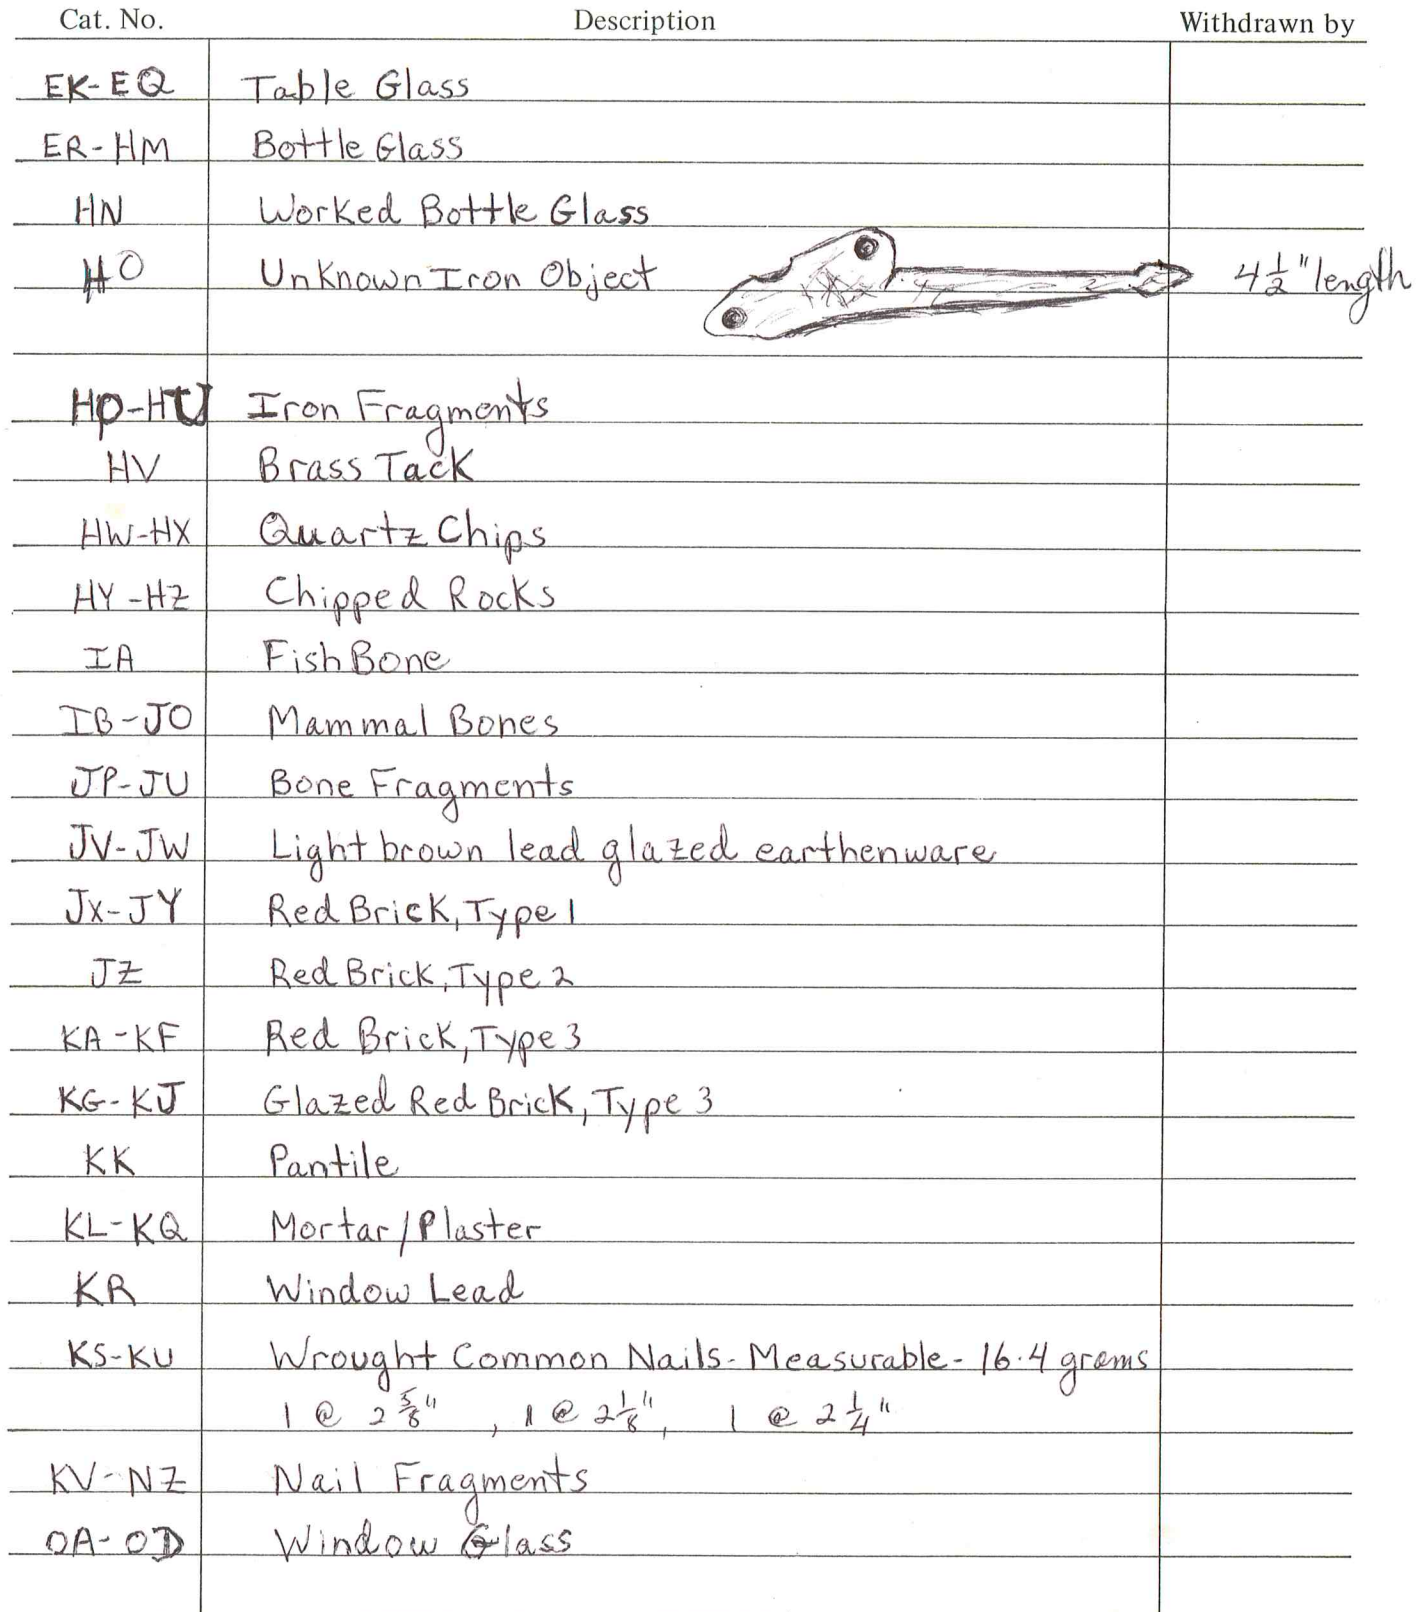 Cat. No. Description Withdrawn by
EK-EQ Table Glass
ER-HM Bottle Glass
HN Worked Bottle Glass
HO Unknown Iron Object 4 1/2" length
HP-HU Iron Fragments
HV Brass Tack
HW-HX Quartz Chips
HY-HZ Chipped Rocks
IA Fish Bone
IB-JO Mammal Bones
JP-JU Bone Fragments
JV-JW Light brown lead glazed earthenware
JX-JY Red Brick, Type 1
JZ Red Brick, Type 2
KA-KF Red Brick, Type 3
KG-KJ Glazed Red Brick, Type 3
KK Pantile
KL-KQ Mortar/Plaster
KR Window Lead
KS-KU Wrought Common Nails-Measurable-16.4 grams
1 @ 2 5/8", 1 @ 2 1/8", 1 @ 2 1/4"
KV-NZ Nail Fragments
OA-OD Window Glass